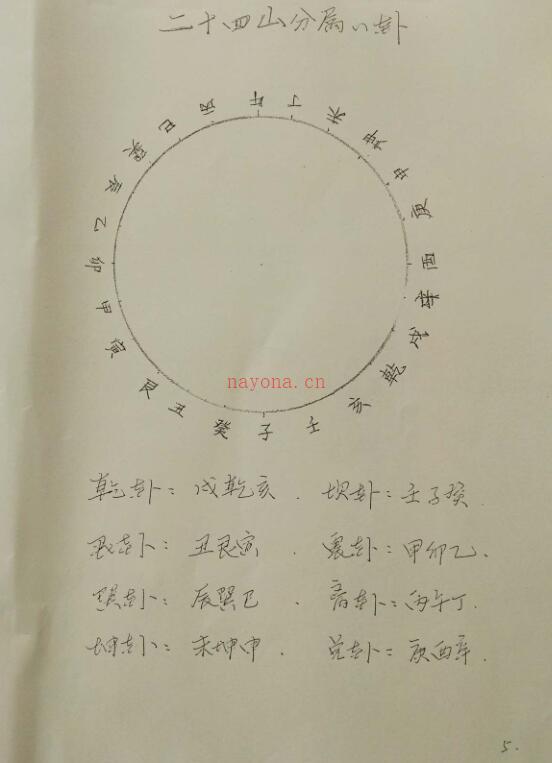 二十四山分属八卦
巳 丙 午 丁 未 坤 申 庚 酉 辛 戌 乾 亥 壬 子 癸 丑 艮 寅 甲 卯 乙 辰 巽
nayona.cn
乾卦：戌乾亥. 坎卦：壬子癸.
艮卦：丑艮寅. 震卦：甲卯乙.
巽卦：辰巽巳. 离卦：丙午丁.
坤卦：未坤申. 兑卦：庚酉辛.
5.